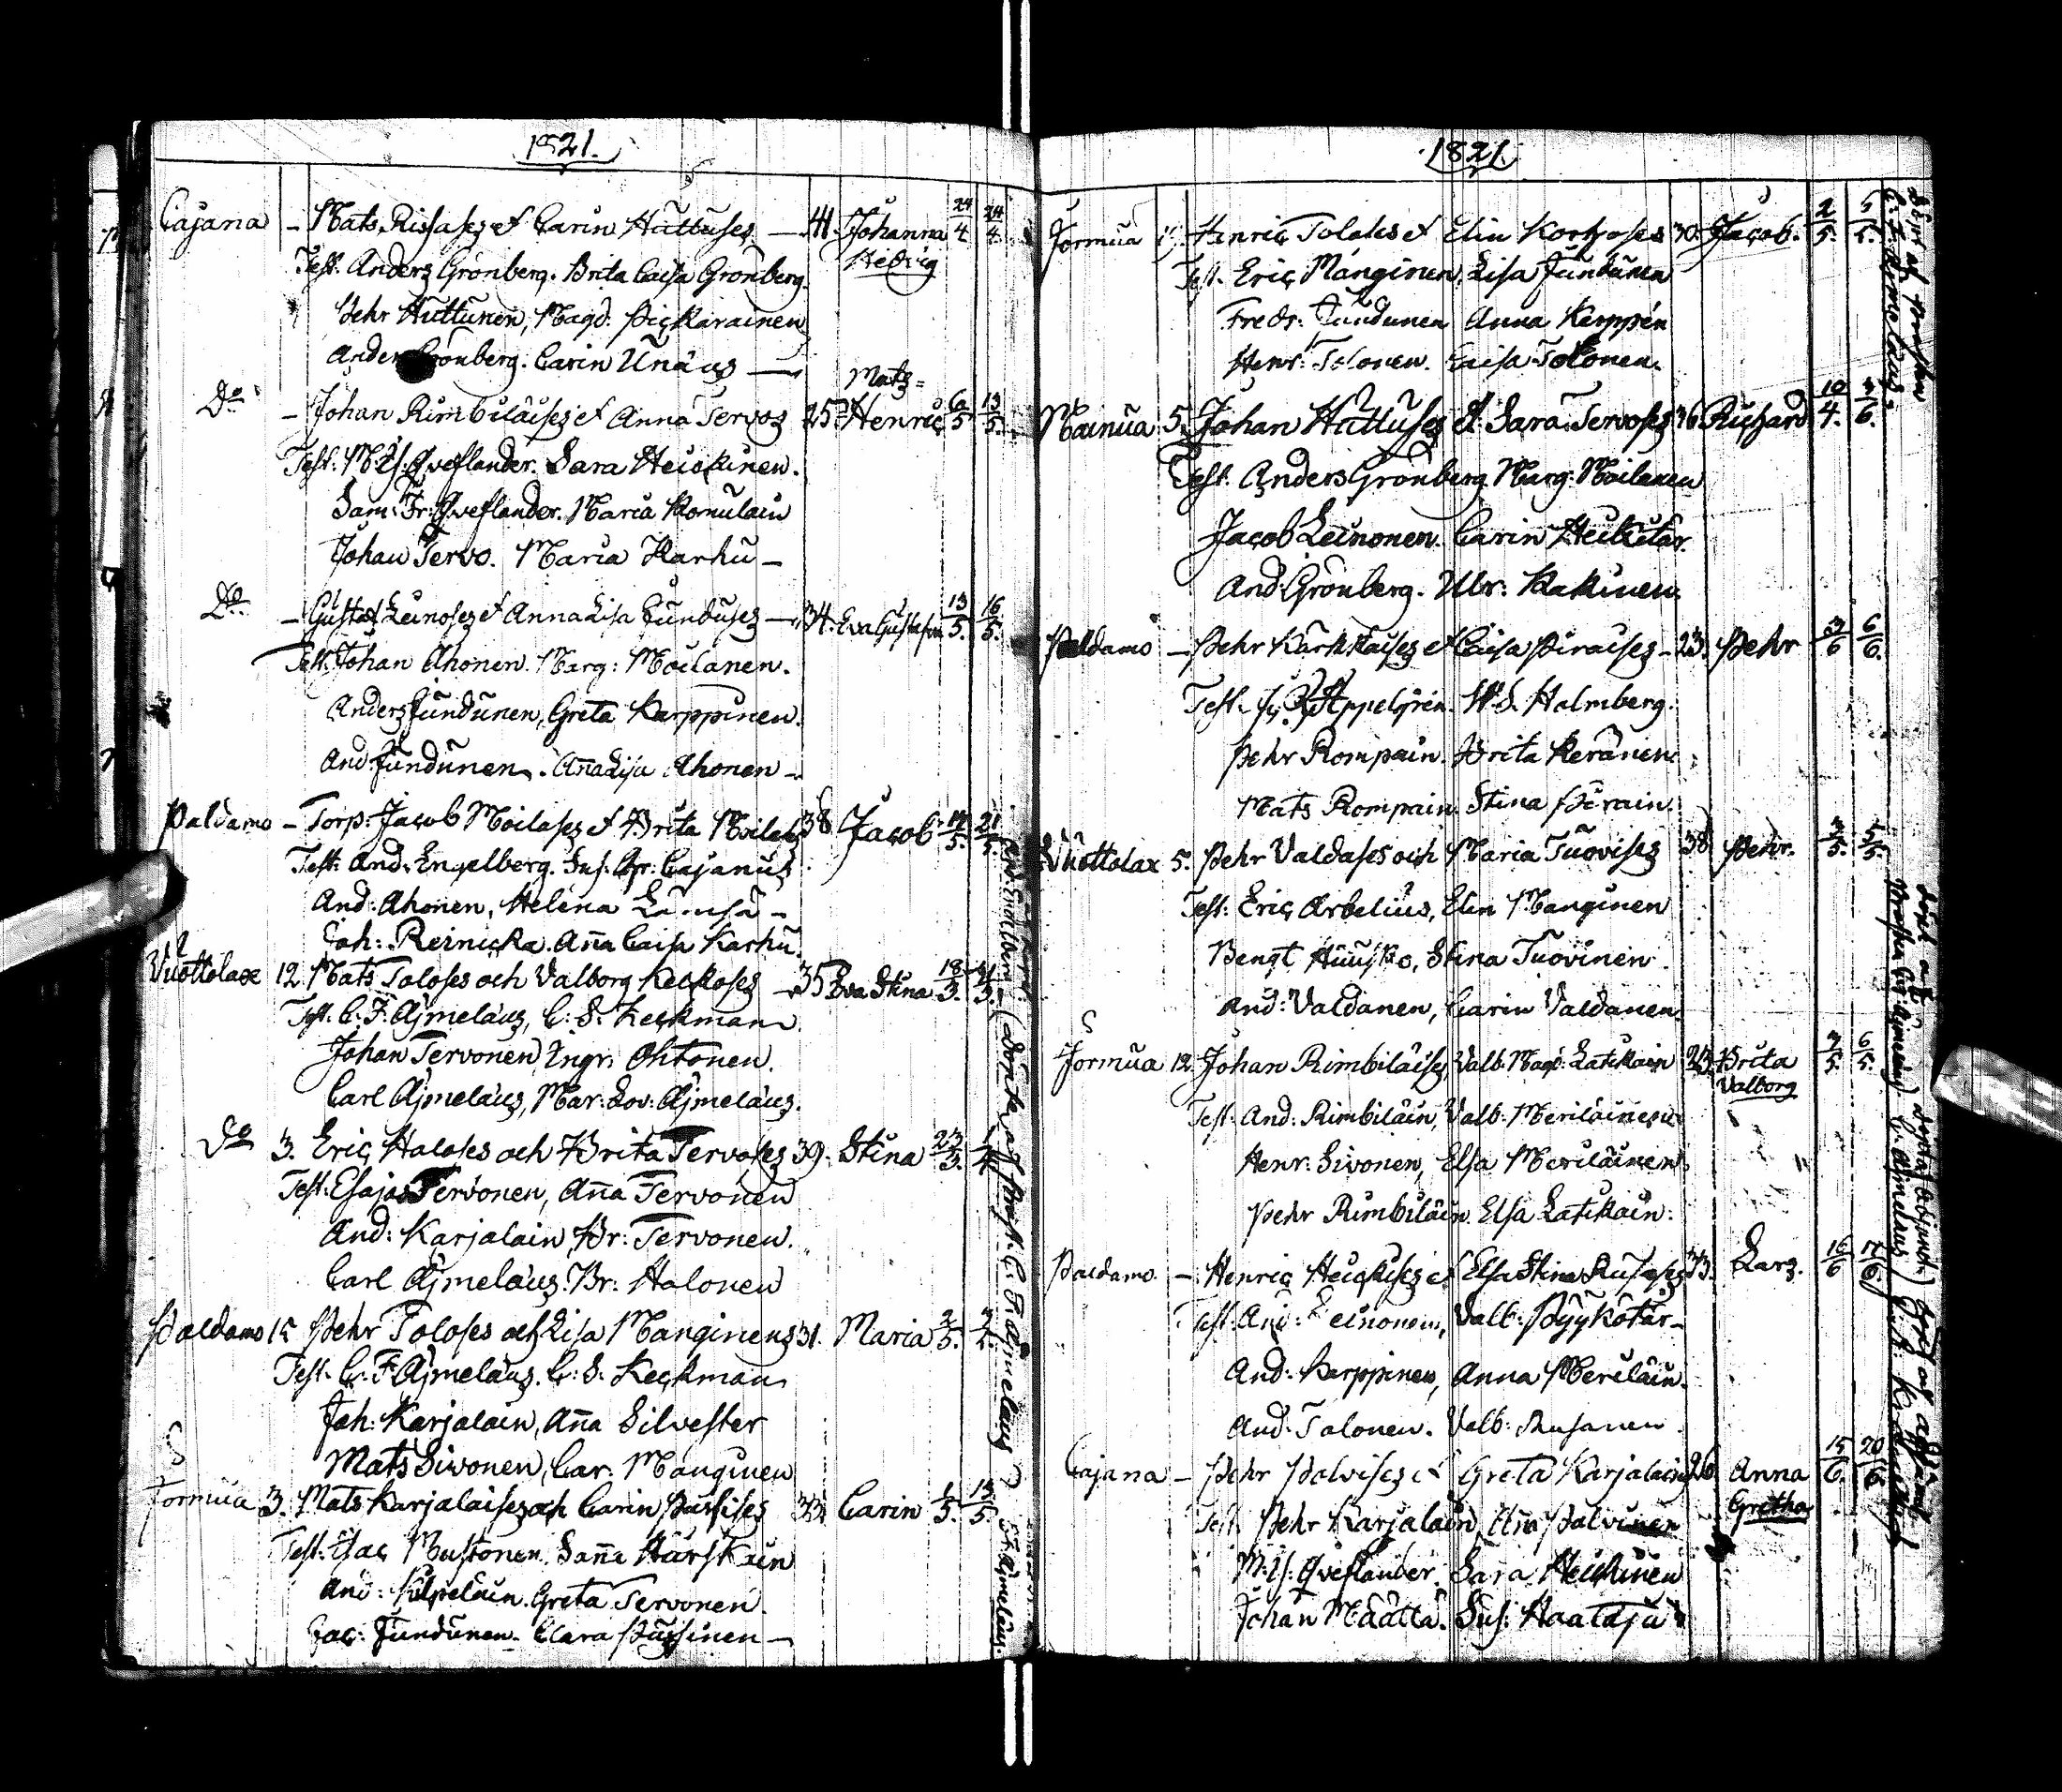 1821.
Cajana - Mats Rissases et Carin Huttuses - 41. Johanna 24/4 24/4
Test. Anders Grönberg. Brita Caisa Grönberg. Hedvig
Pehr Huttunen, Magd: Pickarainen
Anders Grönberg. Carin Unæus -
Mats=
Do - Johan Rimbiläises et Anna Servos 25 Henric 6/5 13/5.
Test: M: Is: Qveflander. Sara Heickinen.
Sam: Fr: Qveflander. Maria Romulain
Johan Tervo. Maria Karhu -
Do - Gustaf Leinoses et Anna Lisa Junduses - 34. Eva Gustafva 13/5. 16/5.
Test: Johan Ahonen. Marg: Moilanen.
Anders Jundunen, Greta Karppinen.
And: Jundunen. Ana Lisa Ahonen -
Paldamo - Torp: Jacob Moilases et Brita Moilases 38 Jacob 21/5.
Test: And: Engelberg. Sus: Cajanus
And: Ahonen, Helena
Joh: Reinicka. Ana Caisa Karhu.
Vuottolax 12. Mats Toloses och Valborg Keckoses - 35 Eva Stina 18/3.
Test. C. F. Ajmelæus, C: S: Keckman.
Johan Tervonen, Ingr: Ohtonen.
Carl Ajmelæus, Mar: Lov: Ajmelæus.
Do 3. Eric Haloses och Brita Tervoses 39. Stina 23/3.
Test: Esajas Tervonen, Ana Tervonen
And: Karjalain, Br: Tervonen.
Carl Ajmelæus. Br: Halonen
Paldamo 15 Pehr Toloses och Lisa Manginens 31. Maria 2/5.
Test. C. F. Ajmelæus. C: S. Keckman
Joh: Karjalain, Ana Silvester
Mats Sivonen, Car: Manginen
Jormua 3. Mats Karjalaises och Carin Pussises 33 Carin 1/5. 13/5
Test: Isac Mustonen. Sana Härskain
And: Kilpeläin. Greta Tervonen.
Jac: Jundunen. Clara Pussinen -
1821.
Jormua Henric Toloses et Elin Kortsoses 30. Jacob. 2/5. 5/5.
Test. Eric Manginen, Lisa Jundunen
Fredr: Jundunen Anna Karppén
Henr: Tolonen. Caisa Tolonen.
Mainua 5. Johan Huttuses et Sara Tervoses 36 Richard 10/4. 3/6.
Test. Anders Grönberg Marg: Moilanen
Jacob Leinonen. Carin Heikitär.
And: Grönberg. Ulr: Kakinen.
Paldamo - Pehr Karkkaises et Caisa Piraises - 23. Pehr 3/6 6/6.
Test. Appelgren. Holmberg.
Pehr Rompain. Brita Keränen
Mats Rompain. Stina Pirain.
Vuottolax 5. Pehr Valdases och Maria Tuovises 38 Pehr. 3/5. 5/5.
Test: Eric Arbelius, Elin Manginen
Bengt Huusko, Stina Tuovinen.
And: Valdanen, Carin Valdanen.
Jormua 12. Johan Rimbiläises, Valb: Magd: Latikain 23 Brita 6/5.
Valborg
Test: And: Rimbiläin, Valb: Meriläinen
Henr: Sivonen, Elsa Meriläinen.
Pehr Rimbiläin. Elsa Latikain.
Paldamo - Henric Heickises et Elsa Stina Rusases 33. Lars. 16/6 17/6.
Test: And: Leinonen, Valb: Pyykötär -
And: Karppinen, Anna Meriläin.
And: Tolonen. Valb: Rusanen
Cajana - Pehr Palvises et Greta Karjalain 26 Anna 15/6. 20/6
Gretha
Test. Pehr Karjalain, Ana Palvinen
M: Is: Qveflander, Sara Heickinen
Johan Määttä. Sus: Haataja